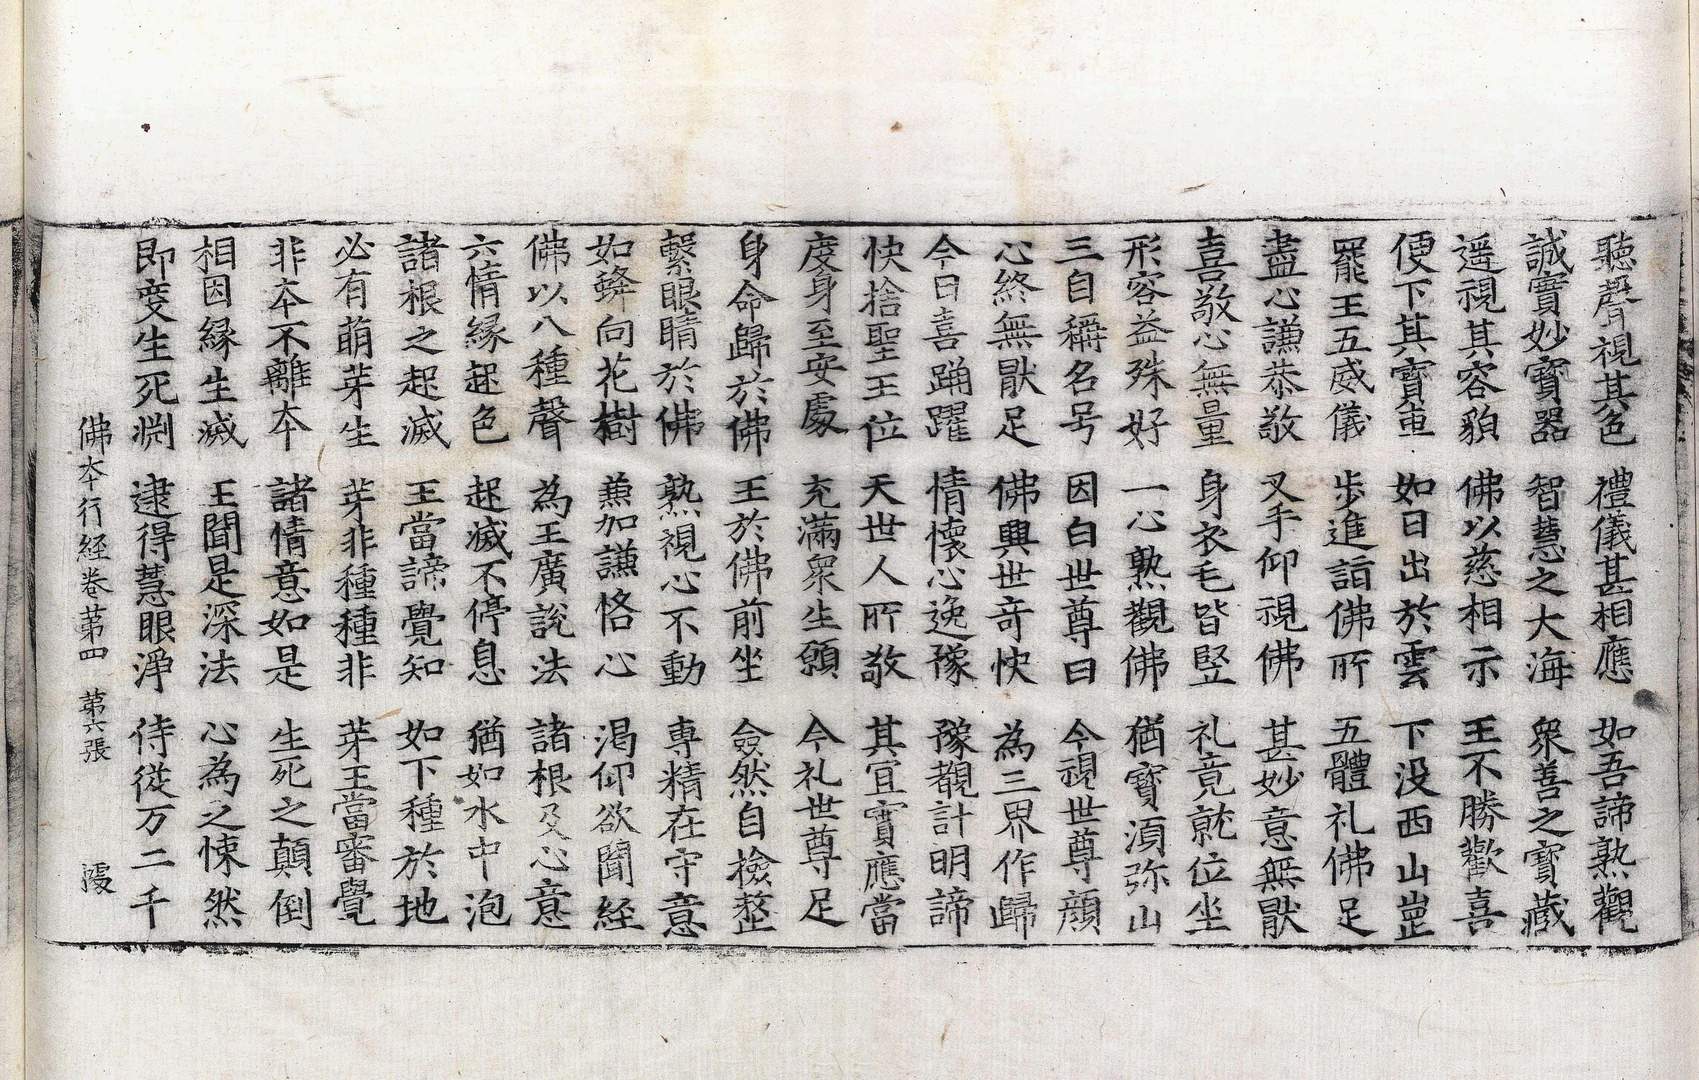 聽聲視其色　禮儀甚相應　如吾諦熟觀
誠實妙寶器　智慧之大海　衆善之寶藏
遥視其容貌　佛以慈相示　王不勝歡喜
便下其寶車　如日出於雲　下没西山嵓
罷王五威儀　步進詣佛所　五體礼佛足
盡心謙恭敬　叉手仰視佛　甚妙意無猒
喜敬心無量　身衣毛皆竪　礼竟就位坐
形容益殊好　一心熟觀佛　猶寶湏弥山
三自稱名号　因白世尊曰　今視世尊顔
心終無猒足　佛興世竒快　為三界作歸
今日喜踊躍　情懷心逸豫　豫覩計明諦
快捨聖王位　天世人所敬　其宜實應當
度身至安處　充滿衆生願　今礼世尊足
身命歸於佛　王於佛前坐　僉然自撿整
繫眼睛於佛　熟視心不動　専精在守意
如蜂向花樹　兼加謙恪心　渴仰欲聞経
佛以八種聲　為王廣說法　諸根及心意
六情縁起色　起滅不停息　猶如水中泡
諸根之起滅　王當諦覺知　如下種於地
必有萌芽生　芽非種種非　芽王當審覺
非夲不離夲　諸情意如是　生死之顛倒
相因縁生滅　王聞是深法　心為之悚然
即變生死渕　逮得慧眼淨　侍從万二千
佛夲行経卷苐四　苐六張